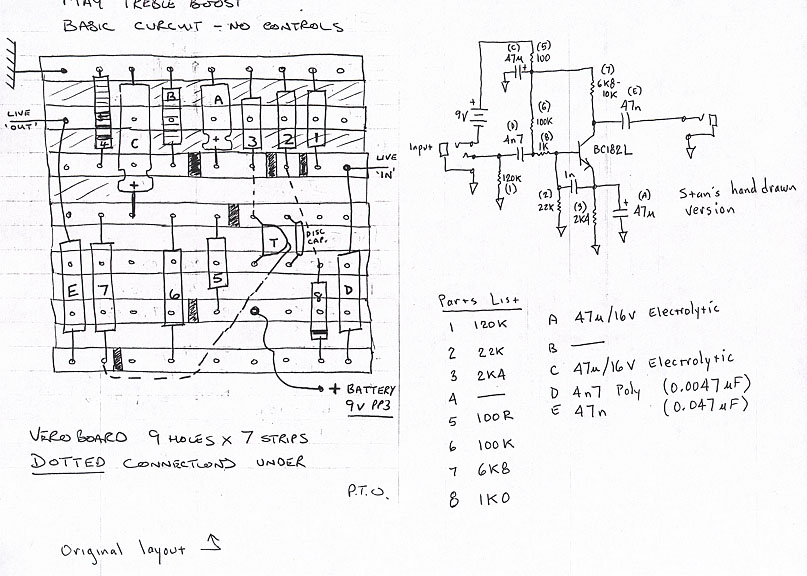 MAY TREBLE BOOST
BASIC CURCUIT – NO CONTROLS
LIVE
'OUT'
4
C
B
A
+
3
2
1
LIVE
'IN'
+
T
DISC
CAP.
E
7
6
5
8
D
+ BATTERY
9V PP3
VEROBOARD 9 HOLES x 7 STRIPS
DOTTED CONNECTIONS UNDER
P.T.O.
Original layout
(C)
47µ
(5)
100
(7)
6K8-
10K
(E)
47n
9V
+
(6)
100K
Input
(D)
4n7
(8)
1K
BC182L
120K
(1)
1n
(2)
22K
(3)
2K4
(A)
47µ
Stan's hand drawn
version
Parts List
1 120K
2 22K
3 2K4
4 —
5 100R
6 100K
7 6K8
8 1K0
A 47µ/16V Electrolytic
B —
C 47µ/16V Electrolytic
D 4n7 Poly (0.0047µF)
E 47n (0.047µF)